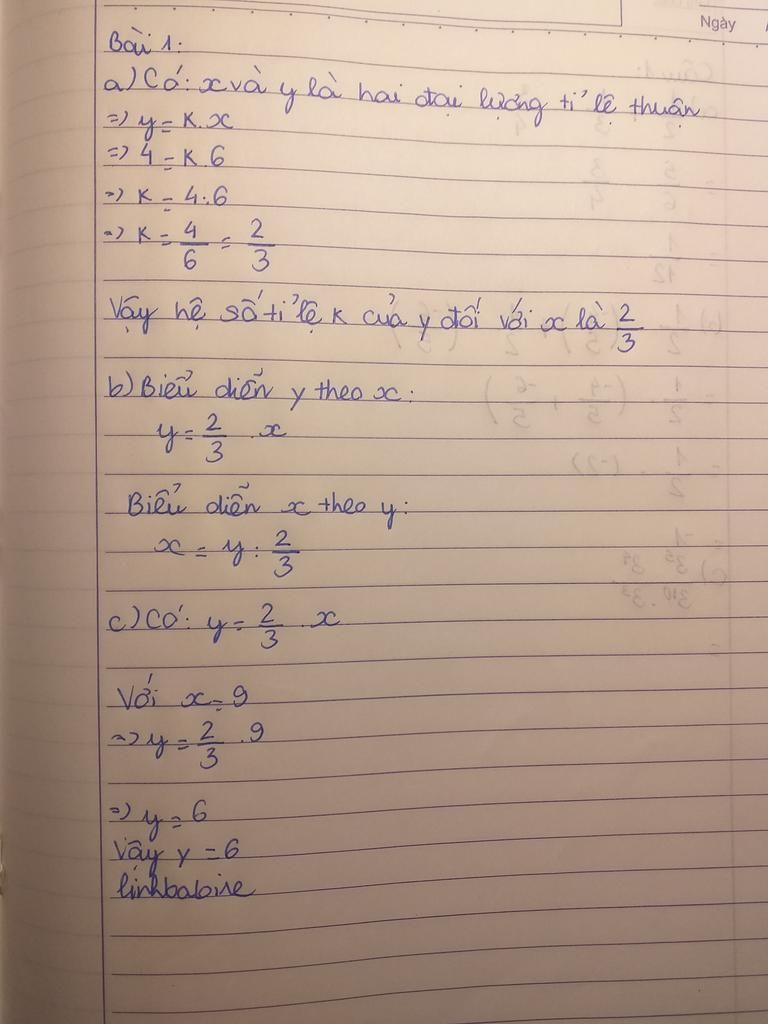 Ngày
Bài 1:
a) Có: x và y là hai đại lượng tỉ lệ thuận
=> y = k.x
=> 4 = k.6
=> k = 4:6
=> k = 4/6 = 2/3
Vậy hệ số tỉ lệ k của y đối với x là 2/3
b) Biểu diễn y theo x:
y = 2/3 . x
Biểu diễn x theo y:
x = y : 2/3
c) Có: y = 2/3 . x
Với x = 9
=> y = 2/3 . 9
=> y = 6
Vậy y = 6